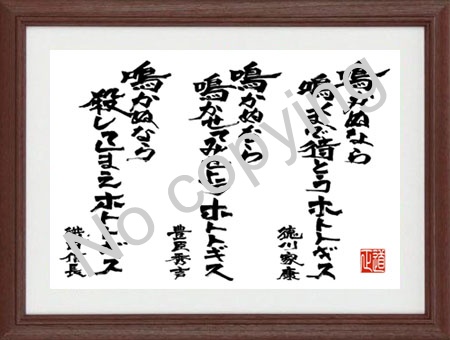 鳴かぬなら
鳴くまで待とうホトトギス
徳川家康
鳴かぬなら
鳴かせてみせようホトトギス
豊臣秀吉
鳴かぬなら
殺してしまえホトトギス
織田信長
No copying